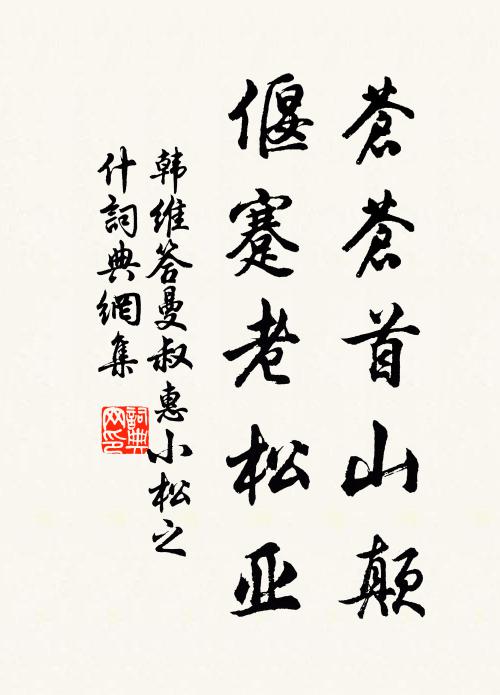 蒼蒼首山顛
偃蹇老松亚
韩維答曼叔惠小松之
什詞典網集
詞典网印